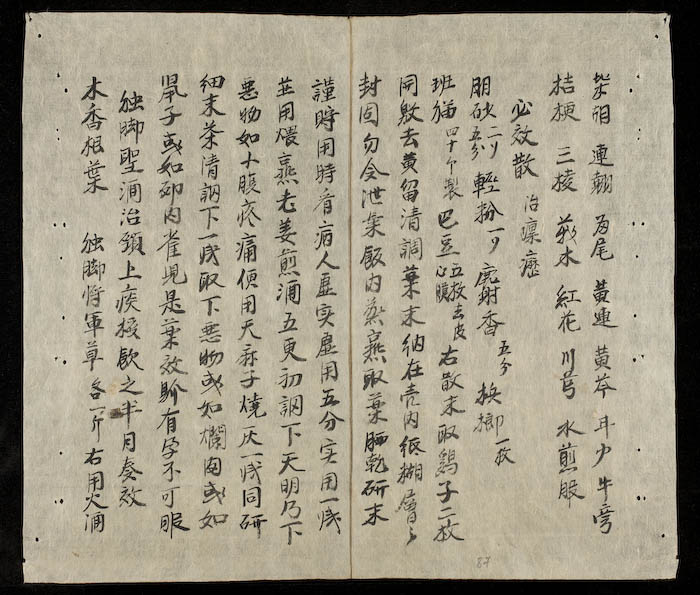 柴胡 連翹 尾 黄連 黄芩 牛旁
桔梗 三棱 莪术 紅花 川芎 水煎服
必效散 治瘰癧
朋砂二刄五分 輕粉一刄 麝香五分 梹榔一枚
班猫四十个製 巴豆五枚去皮心膜 右散末取鷄子二枚
開敷去黄留清調葉末纳在壳内紙糊層々
封固勿令泄葉飯内蒸熹取葉晒乾研末
謹時用時看病人虚实虚用五分实用一戋
並用煨熹老姜煎酒五更初調下天明乃下
悪物如小腹疼痛便用天麻子燒灰一戋同研
細末茶清調下一戋取下悪物或如爛肉或如
鼠子或如卵内雀児是葉效驗有孕不可服
独脚聖酒治頸上痰核飲之半月奏效
木香根葉 独脚将軍草 各一斤 右用火酒
87